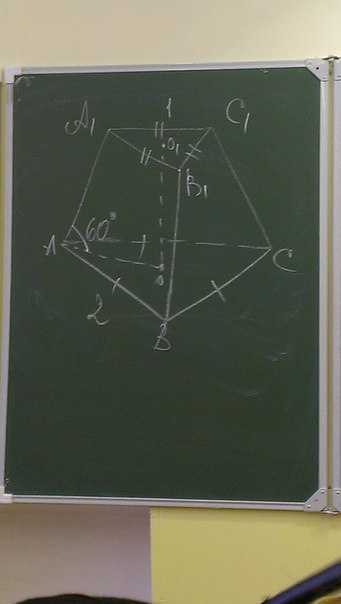 1
A₁ C₁
O₁
B₁
60°
A C
O
2
B